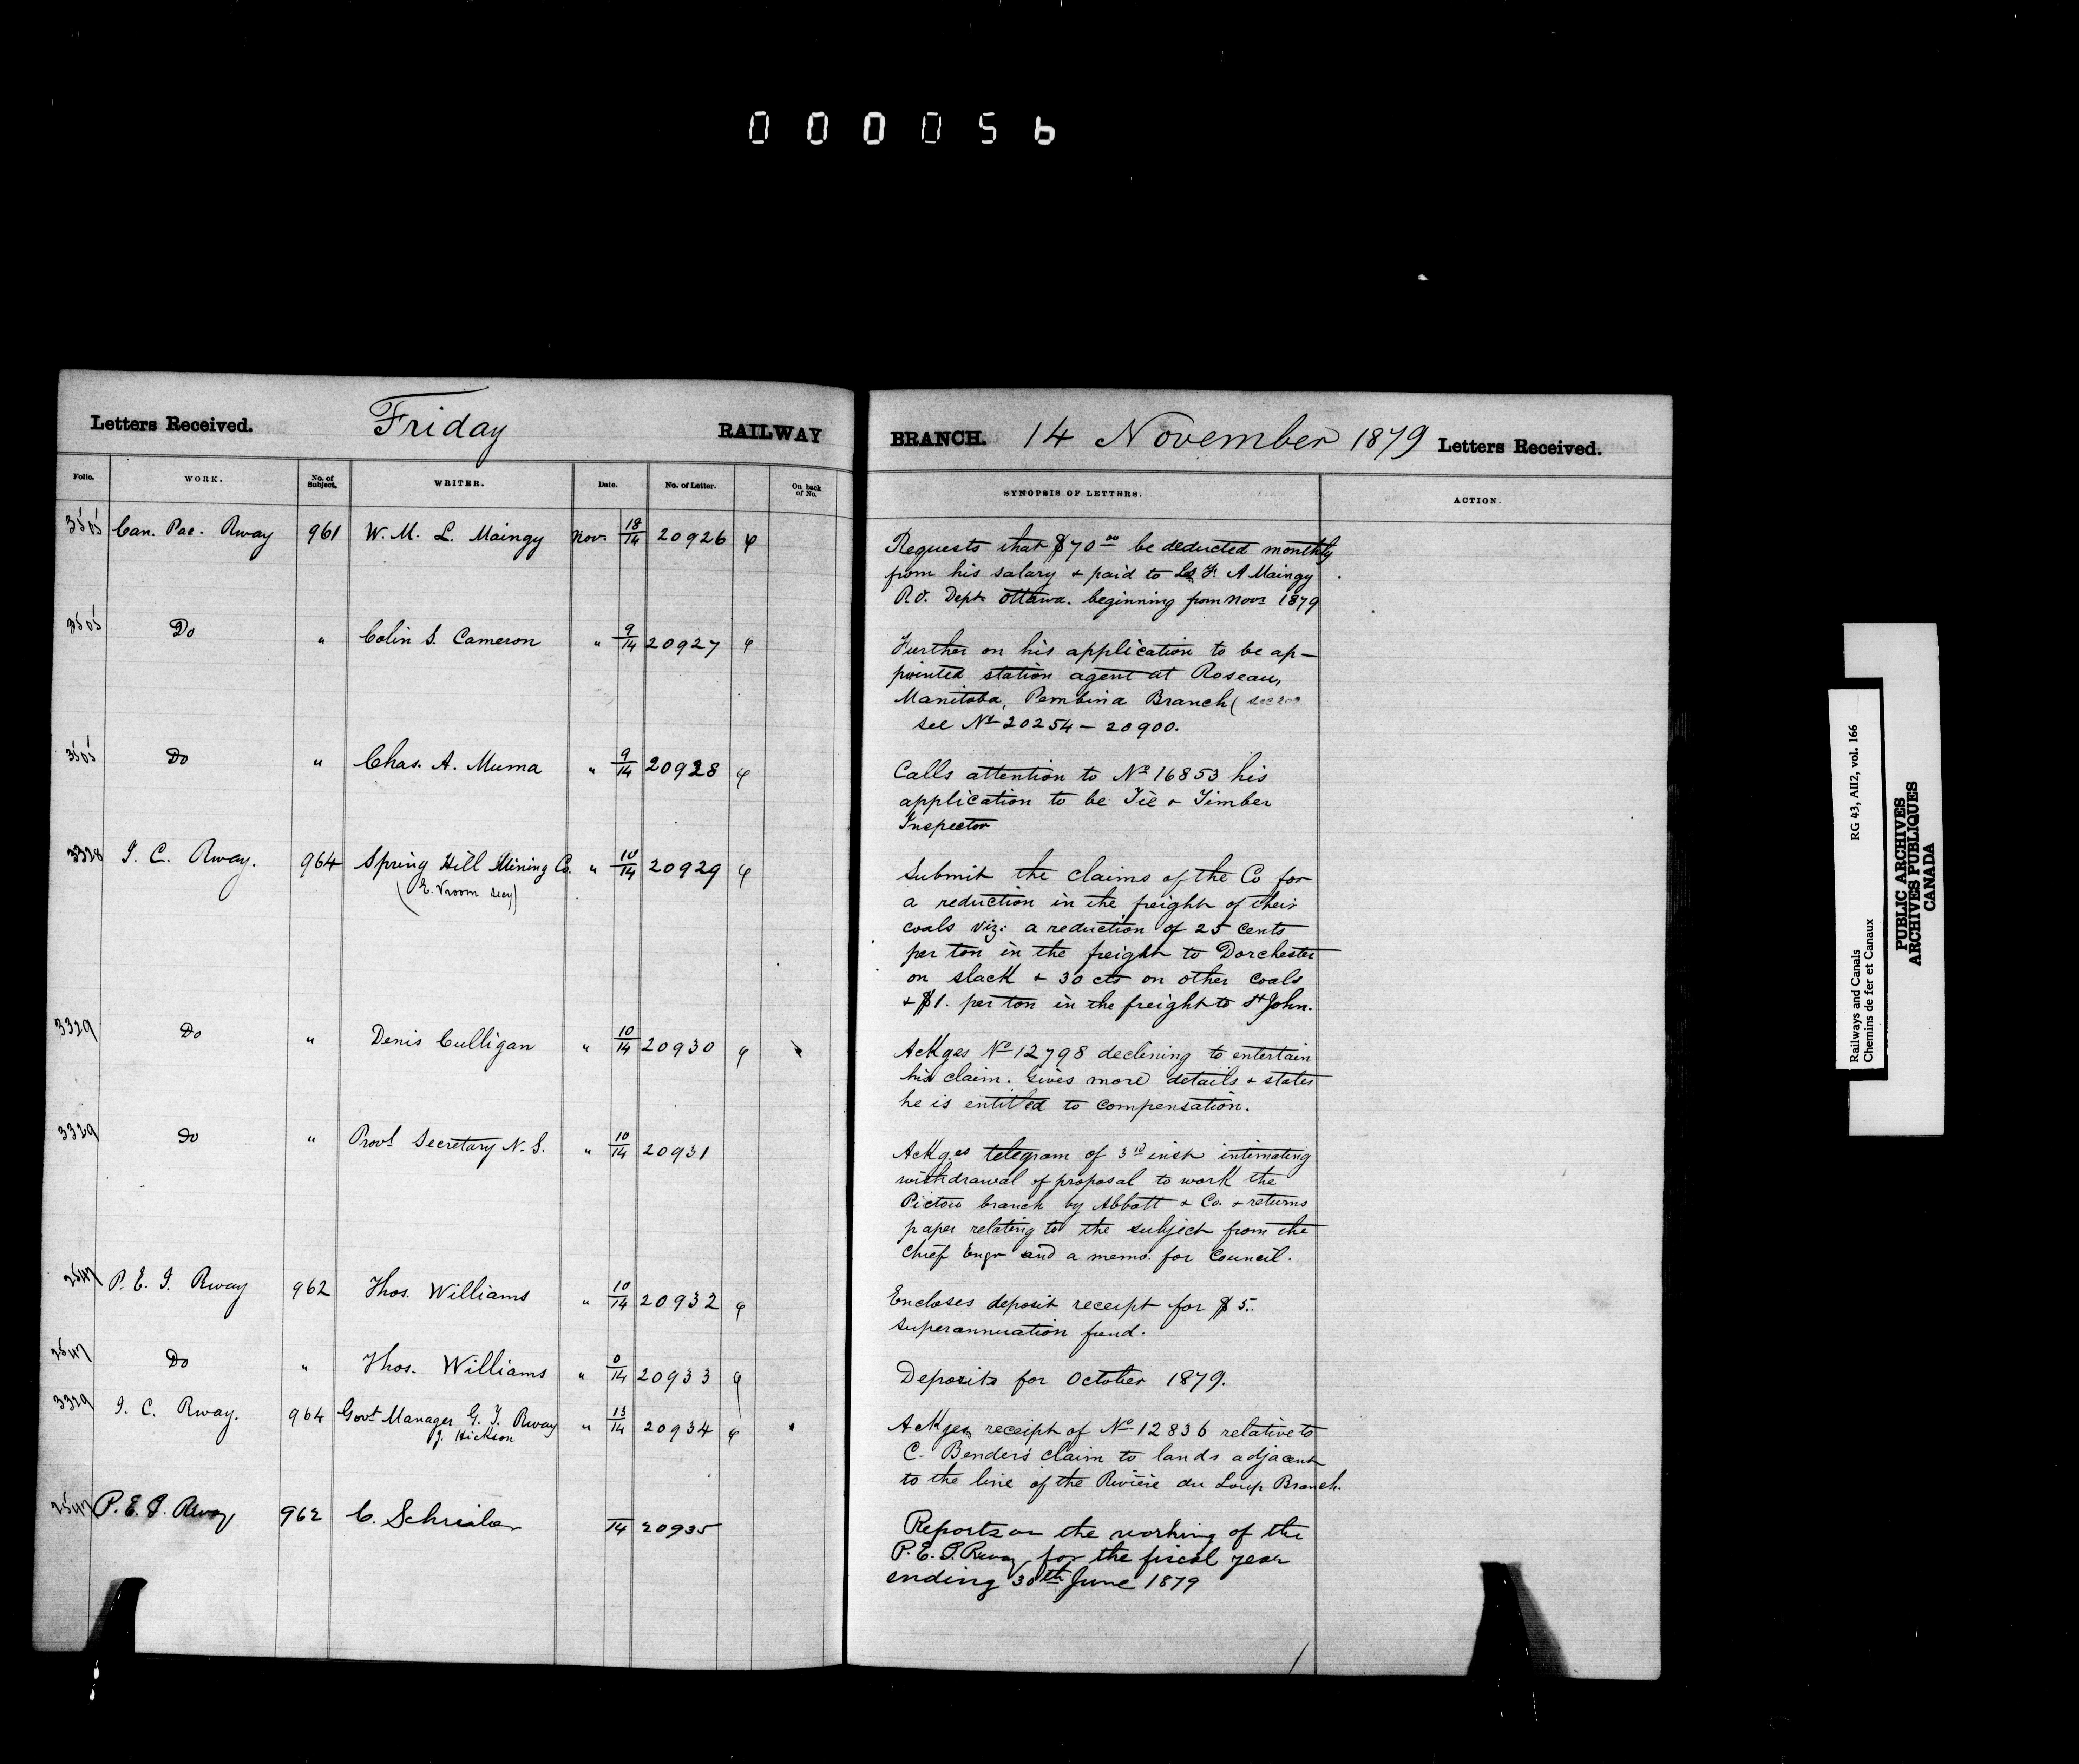 000056
Letters Received. Friday RAILWAY BRANCH. 14 November 1879 Letters Received.
Folio. WORK. No. of Subject. WRITER. Date. No. of Letter. On back of No. SYNOPSIS OF LETTERS. ACTION.
3505 Can. Pac. Rway 961 W. M. L. Maingy Nov. 18/14 20926
Requests that $70 00 be deducted monthly
from his salary & paid to A Maingy
P.O. Dept Ottawa. beginning from Novr 1879
3505 Do " Colin S. Cameron " 9/14 20927
Further on his application to be ap-
pointed station agent at Roseau,
Manitoba, Pembina Branch (
see No 20254 - 20900.
3505 Do " Chas. A. Muma " 9/14 20928
Calls attention to No 16853 his
application to be Tie & Timber
Inspector
3328 I. C. Rway. 964 Spring Hill Mining Co. " 10/14 20929
(E. Vroom Secy)
Submit the claims of the Co for
a reduction in the freight of their
coals viz: a reduction of 25 cents
per ton in the freight to Dorchester
on slack & 30 cts on other coals
& $1. per ton in the freight to St John.
3329 Do " Denis Culligan " 10/14 20930
Ackges No 12798 declining to entertain
his claim. Gives more details & states
he is entitled to compensation.
3329 Do " Provl Secretary N. S. " 10/14 20931
Ackges telegram of 3rd inst intimating
withdrawal of proposal to work the
Pictou branch by Abbott & Co. & returns
paper relating to the subject from the
Chief Engr and a memo. for Council.
2547 P. E. I. Rway 962 Thos. Williams " 10/14 20932
Encloses deposit receipt for $5.
Superannuation fund.
2547 Do " Thos. Williams " 0/14 20933
Deposits for October 1879.
3329 I. C. Rway. 964 Govt Manager G. T. Rway " 13/14 20934
J. Hickson
Ackges receipt of No 12836 relative to
C. Bender's claim to lands adjacent
to the line of the Rivière du Loup Branch.
2547 P. E. I. Rway 962 C. Schreiber /14 20935
Reports on the working of the
P. E. I. Rway for the fiscal year
ending 30th June 1879
Railways and Canals RG 43, AII2, vol. 166
Chemins de fer et Canaux
PUBLIC ARCHIVES
ARCHIVES PUBLIQUES
CANADA